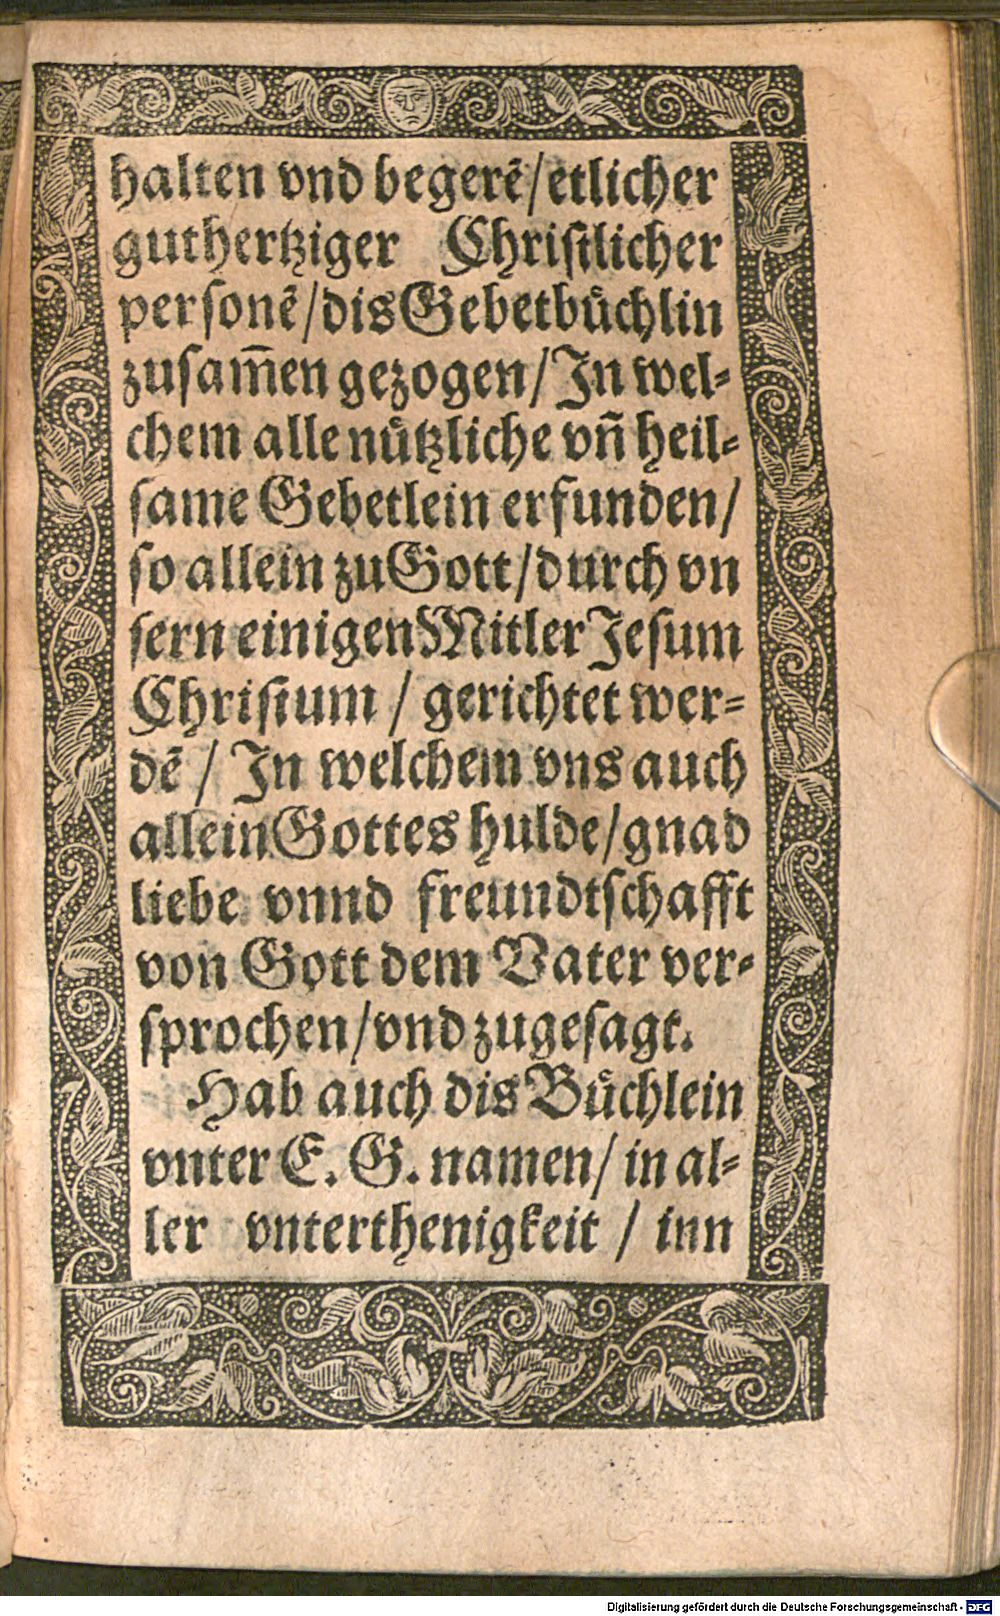 halten vnd begerē/etlicher
guthertziger Christlicher
personē/dis Gebetbuͤchlin
zusam̅en gezogen/In wel⸗
chem alle nuͤtzliche vn̄ heil⸗
same Gebetlein erfunden/
so allein zu Gott/durch vn
sern einigen Mitler Jesum
Christum / gerichtet wer⸗
dē / In welchem vns auch
allein Gottes hulde/gnad
liebe vnnd freundtschafft
von Gott dem Vater ver⸗
sprochen/vnd zugesagt.
Hab auch dis Buͤchlein
vnter E. G. namen/ in al⸗
ler vnterthenigkeit / inn
Digitalisierung gefördert durch die Deutsche Forschungsgemeinschaft - DFG